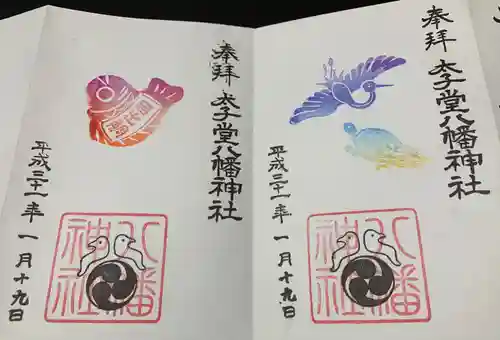 奉拝
太子堂八幡神社
平成三十一年一月十九日
八幡
神社
奉拝
太子堂八幡神社
平成三十一年一月十九日
八幡
神社